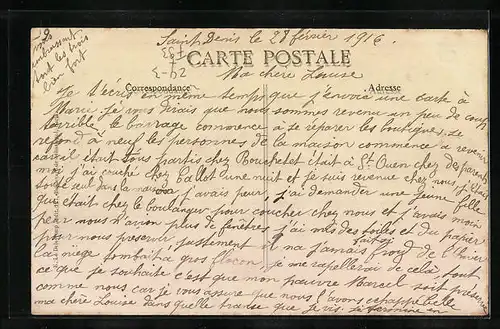 Saint Denis le 28 février 1916.
CARTE POSTALE
Ma chère Louise
Correspondance
Adresse
Je t'écris en même temps que j'envoie une carte à
Marie je vous dirais que nous sommes revenu en peu de coup
terrible le barrage commence à se réparer les boutiques se
refond à neuf les personnes de la maison commence a revenir
car il était tous partis chez Bouchelet était à St Ouen chez des parents
moi j'ai couché chez Callet une nuit et je suis revenue chez nous j'étais
toute seul dans la maison j'avais peur j'ai demander une jeune fille
qui était chez le boulanger pour coucher chez nous et j'avais moin
peur nous n'avion plus de fenêtres j'ai mis des toiles et du papier
pour nous preserver, justement il na jamais fait si froid de l'hiver
la neige tombait a gros flocon je me rapellerai de cela, tout
ce que je souhaite c'est que mon pauvre Marcel soit préservé
comme nous car je vous assure que nous l'avons echappé belle
ma chère Louise dans quelle transe que je vis je termine en
vous embrassant
tout les trois
bien fort